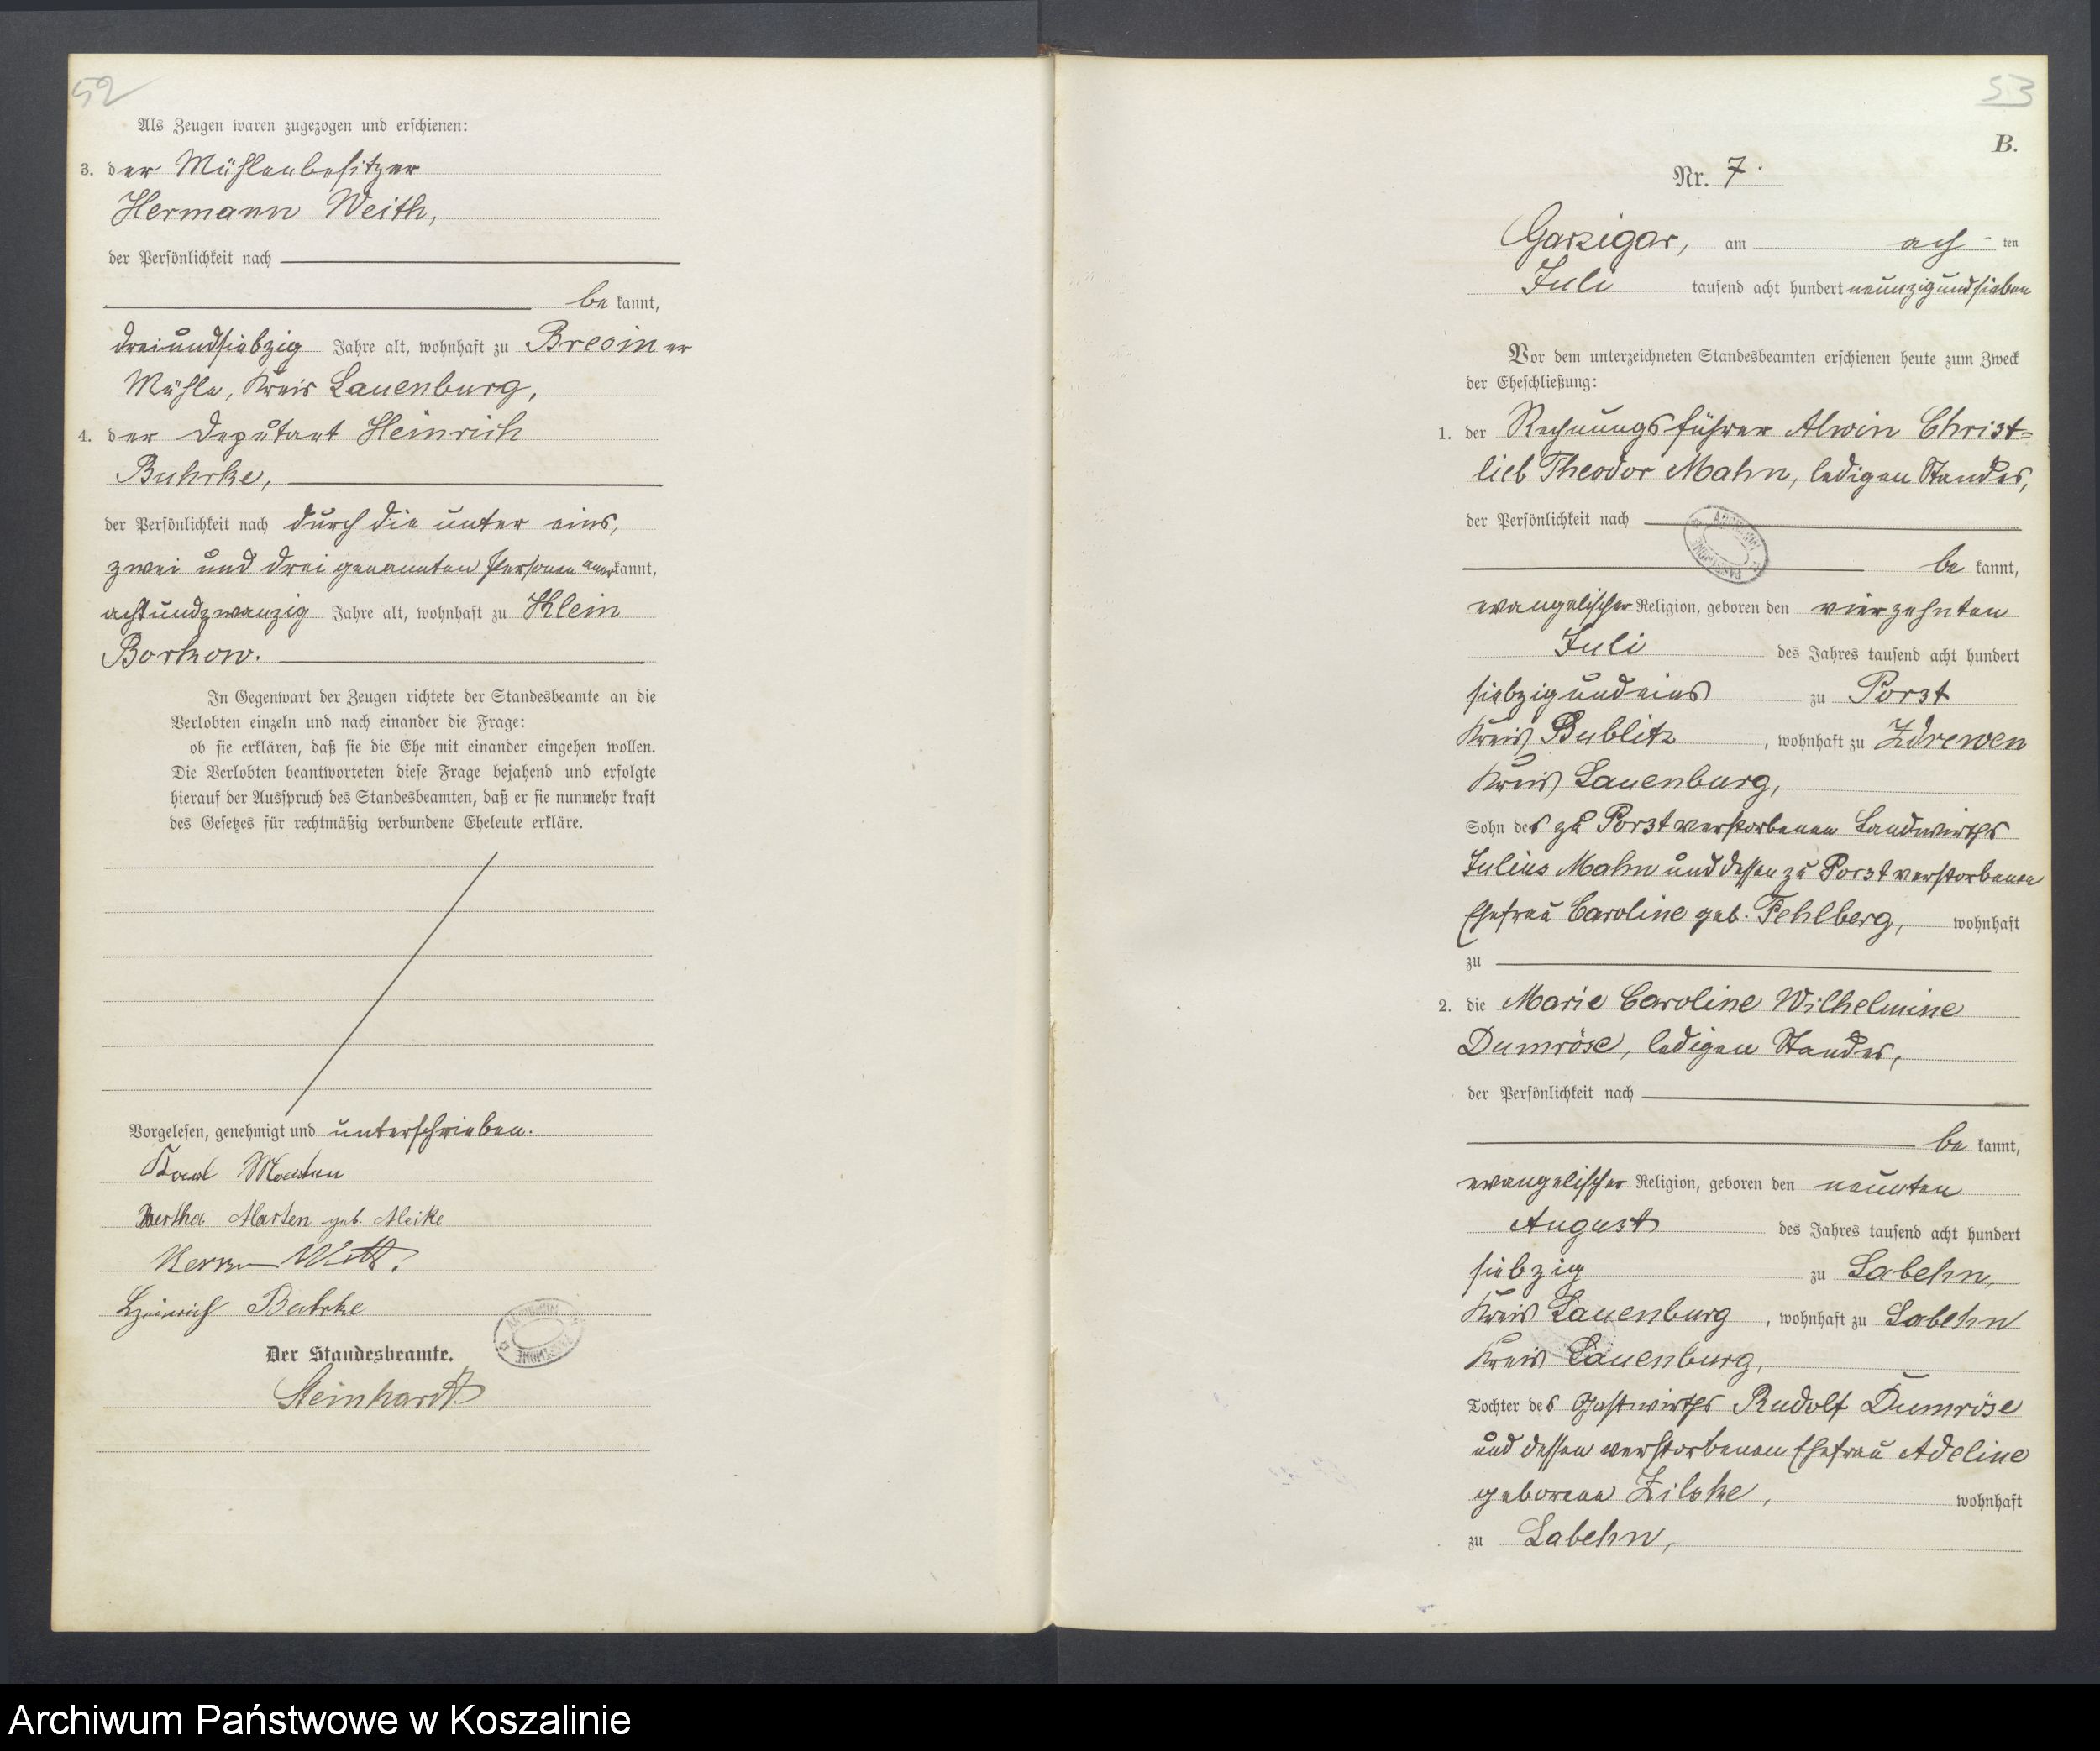 52
Als Zeugen waren zugezogen und erschienen:
3. der Mühlenbesitzer
Hermann Weith,
der Persönlichkeit nach
be kannt,
dreiundsiebzig Jahre alt, wohnhaft zu Bresin er
Mühle, Kreis Lauenburg,
4. der Deputant Heinrich
Buhrke,
der Persönlichkeit nach durch die unter eins,
zwei und drei genannten Personen anerkannt,
achtundzwanzig Jahre alt, wohnhaft zu Klein
Borkow.
In Gegenwart der Zeugen richtete der Standesbeamte an die
Verlobten einzeln und nach einander die Frage:
ob sie erklären, daß sie die Ehe mit einander eingehen wollen.
Die Verlobten beantworteten diese Frage bejahend und erfolgte
hierauf der Ausspruch des Standesbeamten, daß er sie nunmehr kraft
des Gesetzes für rechtmäßig verbundene Eheleute erkläre.
Vorgelesen, genehmigt und unterschrieben.
Karl Marten
Bertha Marten geb. Meike
Heinrich Buhrke
Der Standesbeamte.
Steinhardt
53
B.
Nr. 7.
Garzigar, am ach - ten
Juli tausend acht hundert neunzigundsieben
Vor dem unterzeichneten Standesbeamten erschienen heute zum Zweck
der Eheschließung:
1. der Rechnungsführer Alwin Christ=
lieb Theodor Mahn, ledigen Standes,
der Persönlichkeit nach
be kannt,
evangelischer Religion, geboren den vierzehnten
Juli des Jahres tausend acht hundert
siebzigundeins zu Porst
Kreis Bublitz, wohnhaft zu Zdrewen
Kreis Lauenburg,
Sohn des zu Porst verstorbenen Landwirths
Julius Mahn und dessen zu Porst verstorbenen
Ehefrau Caroline geb. Fehlberg, wohnhaft
zu
2. die Marie Caroline Wilhelmine
Dumröse, ledigen Standes,
der Persönlichkeit nach
be kannt,
evangelischer Religion, geboren den neunten
August des Jahres tausend acht hundert
siebzig zu Labehn,
Kreis Lauenburg, wohnhaft zu Labehn
Kreis Lauenburg,
Tochter des Gastwirths Rudolf Dumröse
und dessen verstorbenen Ehefrau Adeline
geborene Zilske, wohnhaft
zu Labehn,
Archiwum Państwowe w Koszalinie